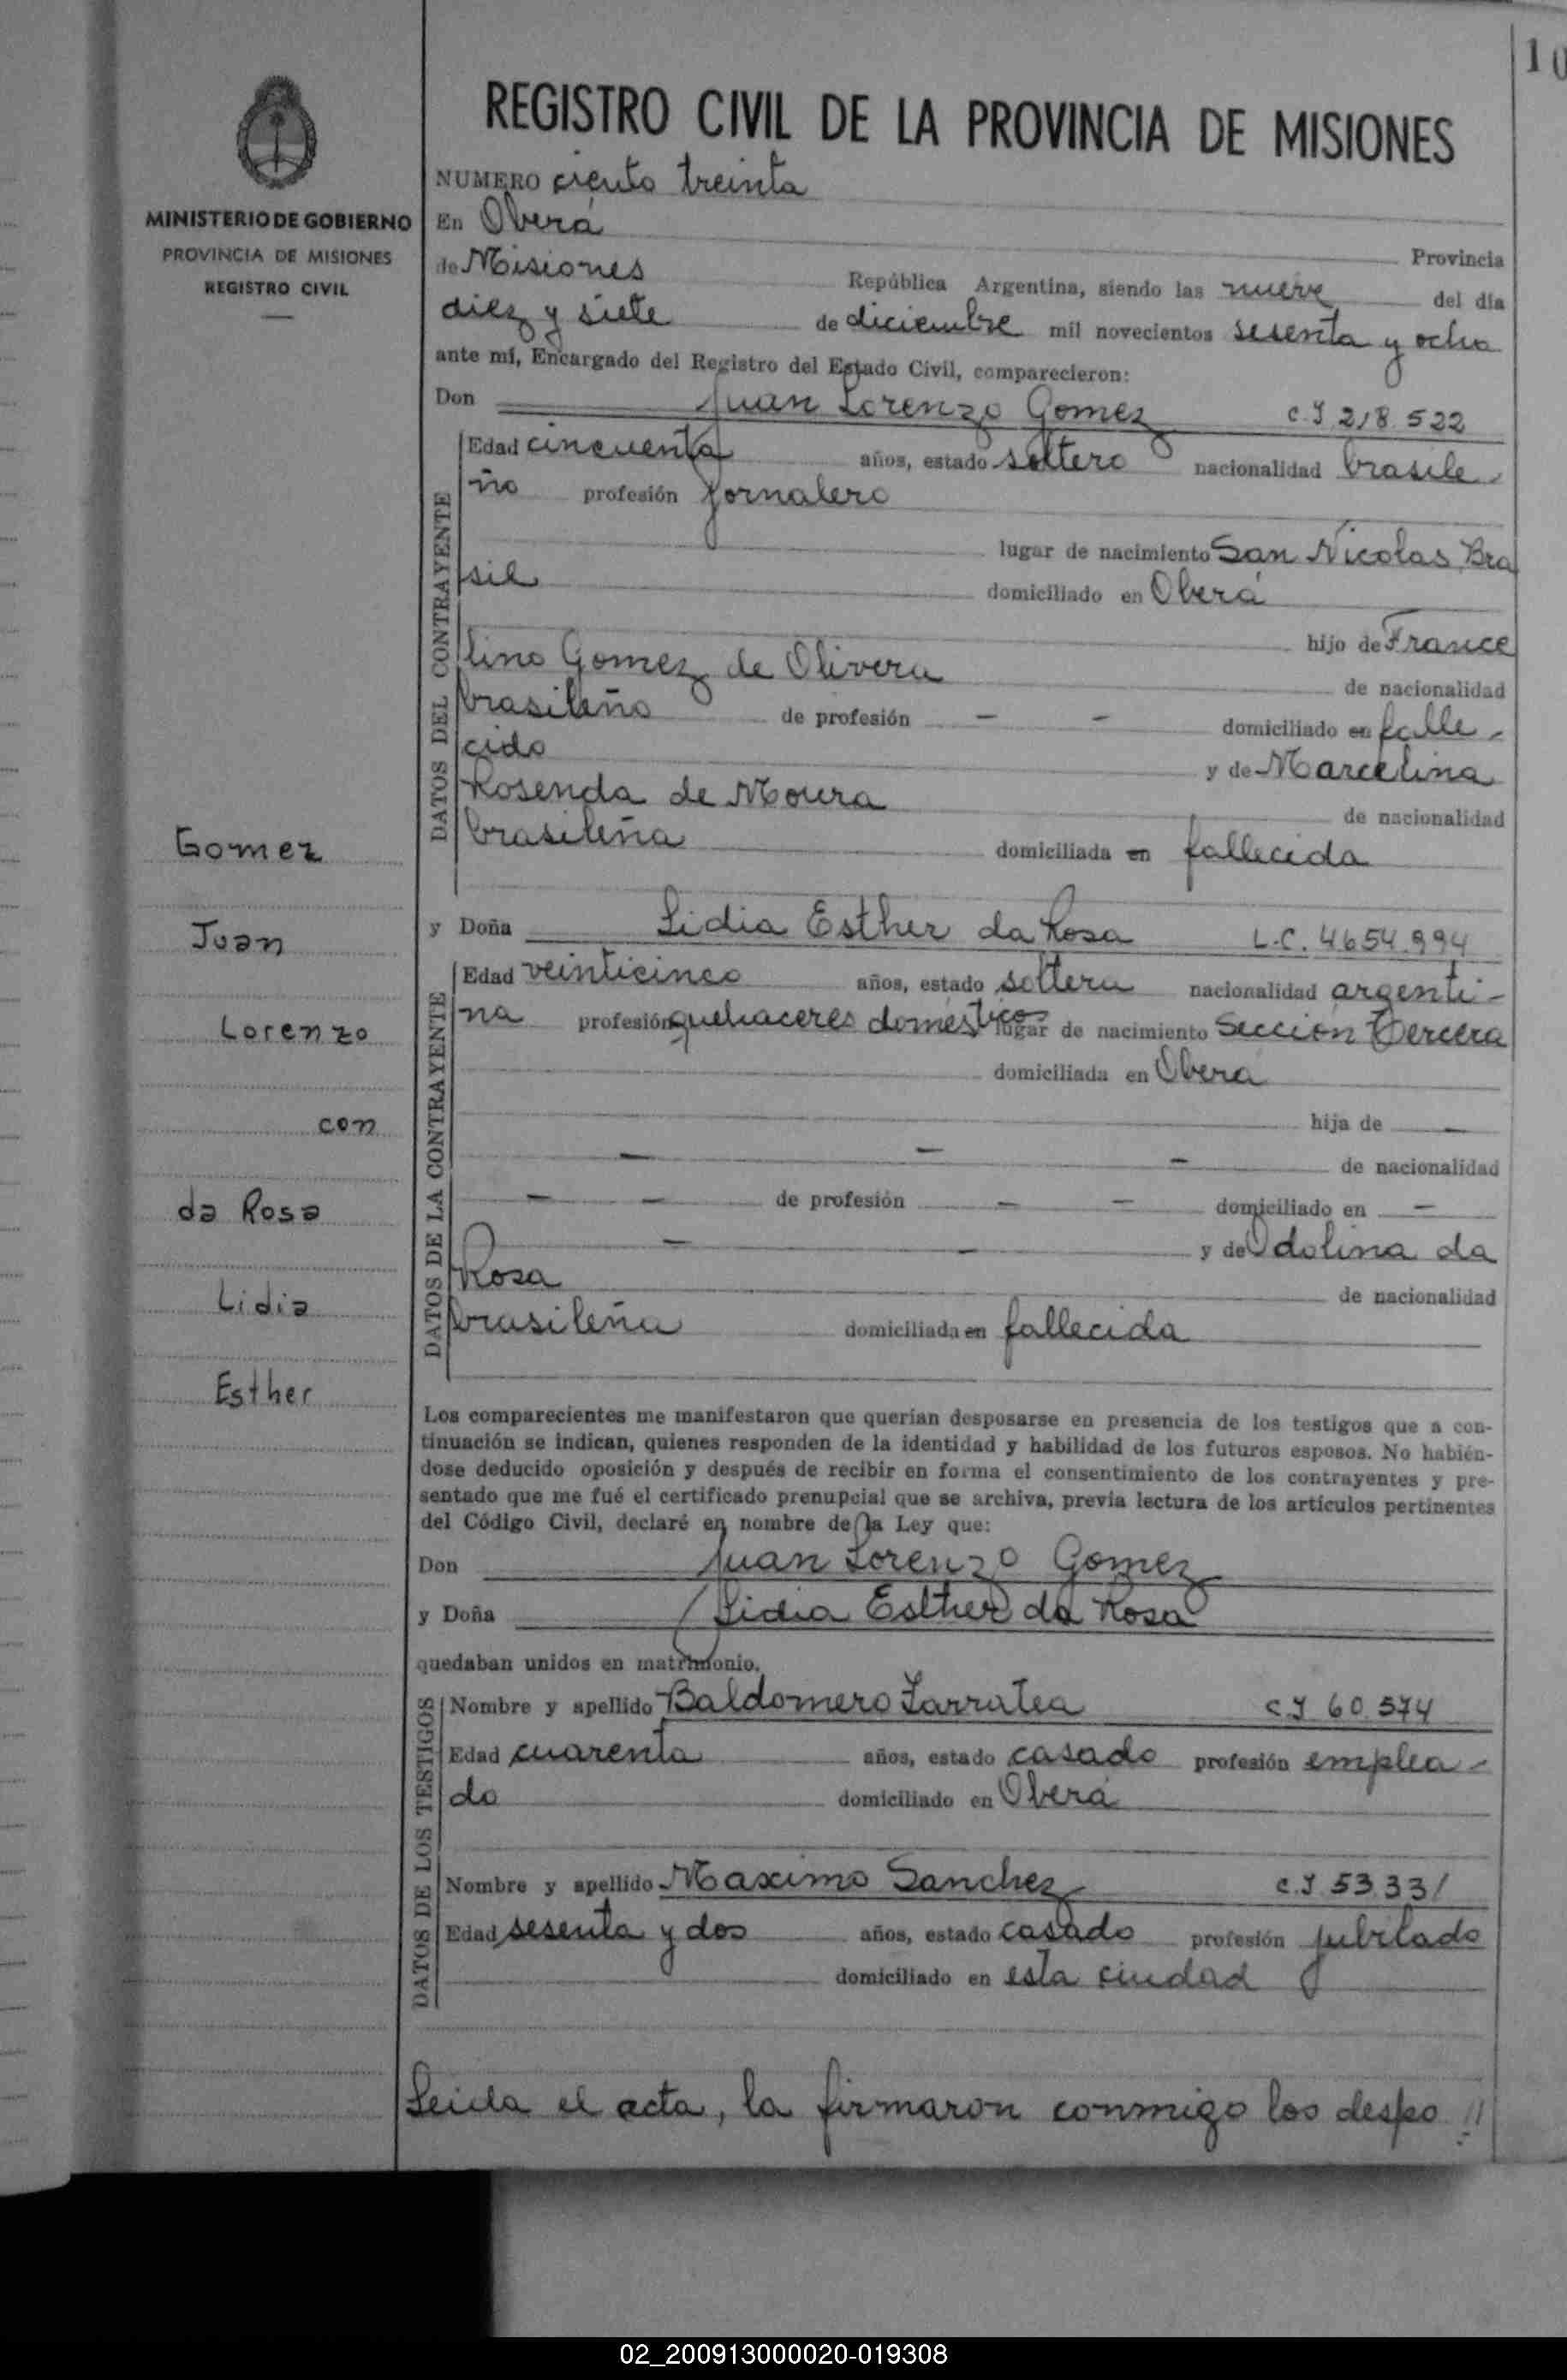 10
REGISTRO CIVIL DE LA PROVINCIA DE MISIONES
MINISTERIO DE GOBIERNO
PROVINCIA DE MISIONES
REGISTRO CIVIL
NUMERO ciento treinta
En Oberá Provincia
de Misiones República Argentina, siendo las nueve del dia
diez y siete de diciembre mil novecientos sesenta y ocho
ante mí, Encargado del Registro del Estado Civil, comparecieron:
Don Juan Lorenzo Gomez C.I 218.522
DATOS DEL CONTRAYENTE
Edad cincuenta años, estado soltero nacionalidad brasile-
ño profesión jornalero
lugar de nacimiento San Nicolas Bra
sil domiciliado en Oberá
hijo de France
lino Gomez de Olivera de nacionalidad
brasileño de profesión - - domiciliado en falle-
cido y de Marcelina
Rosenda de Moura de nacionalidad
brasileña domiciliada en fallecida
y Doña Lidia Esther da Rosa L.C. 4654.994
DATOS DE LA CONTRAYENTE
Edad veinticinco años, estado soltera nacionalidad argenti-
na profesión quehaceres domésticos lugar de nacimiento Sección Tercera
domiciliada en Oberá
hija de —
— — — de nacionalidad
— — de profesión — — domiciliado en —
— — y de Odolina da
Rosa de nacionalidad
brasileña domiciliada en fallecida
Gomez
Juan
Lorenzo
con
da Rosa
Lidia
Esther
Los comparecientes me manifestaron que querían desposarse en presencia de los testigos que a con-
tinuación se indican, quienes responden de la identidad y habilidad de los futuros esposos. No habién-
dose deducido oposición y después de recibir en forma el consentimiento de los contrayentes y pre-
sentado que me fué el certificado prenupcial que se archiva, previa lectura de los artículos pertinentes
del Código Civil, declaré en nombre de la Ley que:
Don Juan Lorenzo Gomez
y Doña Lidia Esther da Rosa
quedaban unidos en matrimonio.
DATOS DE LOS TESTIGOS
Nombre y apellido Baldomero Larratea C.I 60.574
Edad cuarenta años, estado casado profesión emplea-
do domiciliado en Oberá
Nombre y apellido Maximo Sanchez C.I 53.331
Edad sesenta y dos años, estado casado profesión jubilado
domiciliado en esta ciudad
Leida el acta, la firmaron conmigo los despo //
02_200913000020-019308